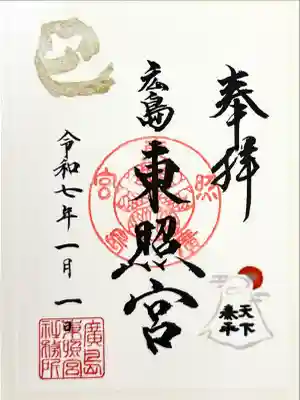 奉拝
広島
東照宮
天下
泰平
令和七年一月一日
廣島
東照宮
社務所